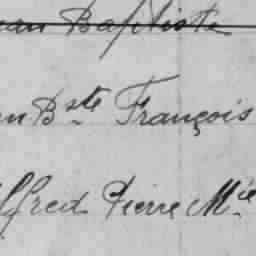 ean Baptiste
n Bste François
lfred Pierre Mie